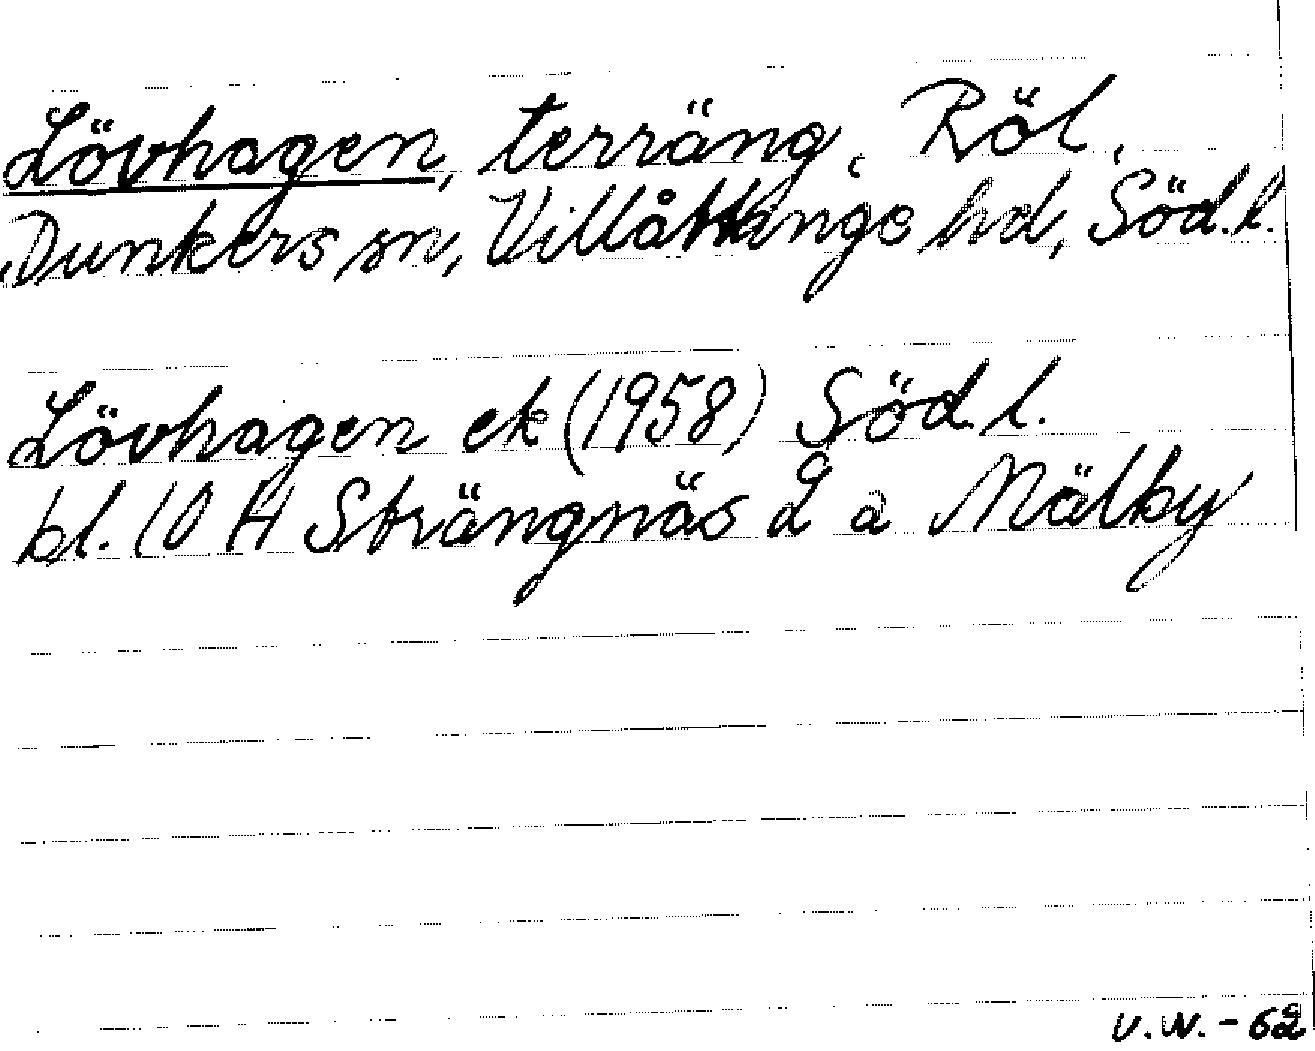 Lövhagen, terräng, Röl,
Dunkers sn, Villåttinge hd, Söd.l.
Lövhagen ek (1958) Söd.l.
bl. 10 H Strängnäs 2 a Mälby
V.W.-62